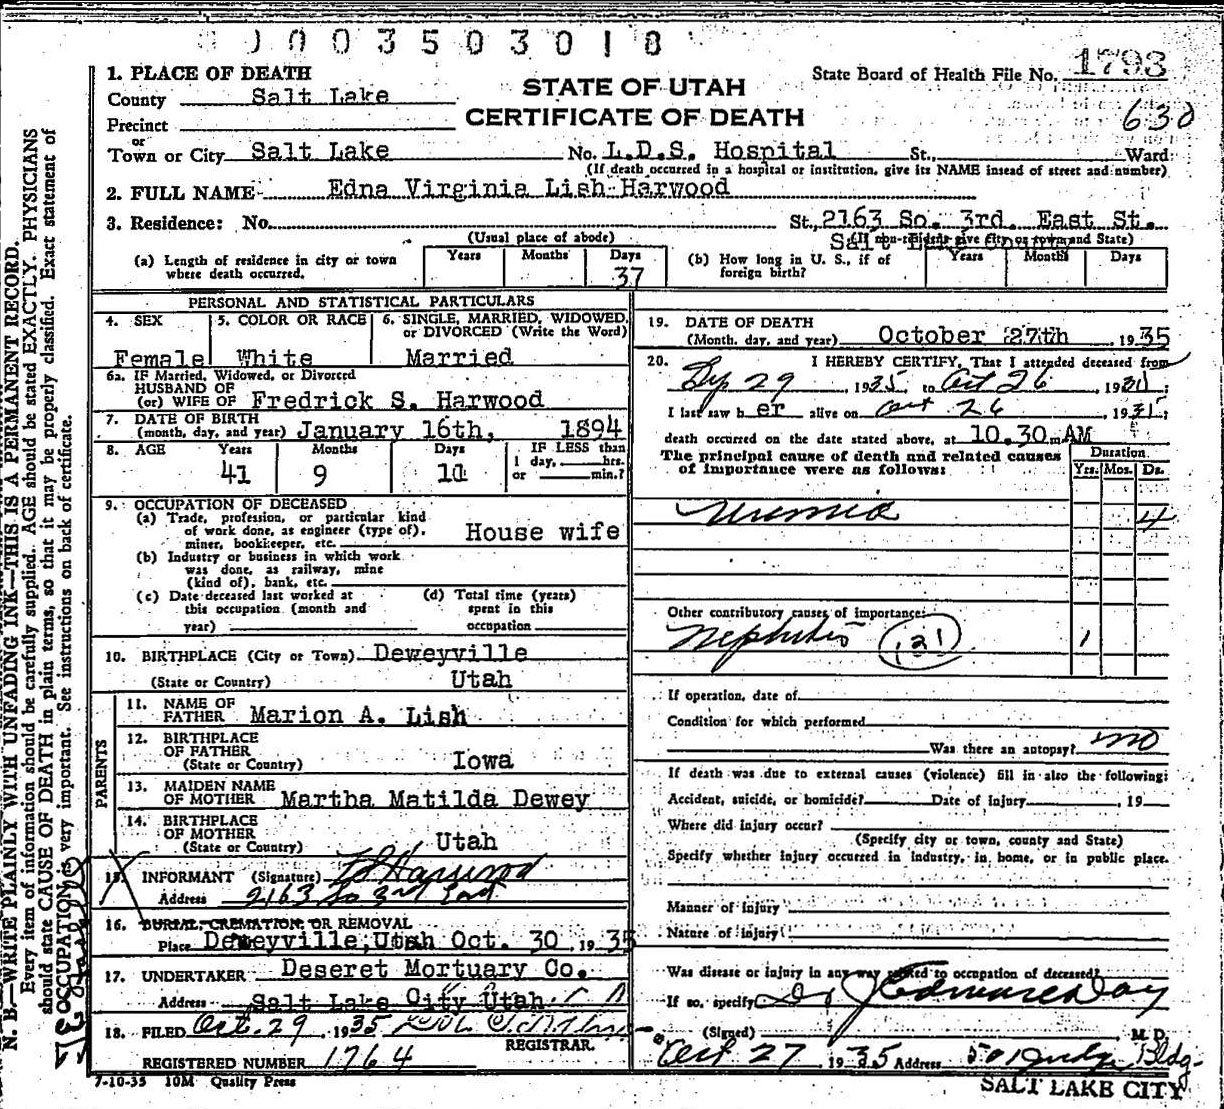 0003503018
1. PLACE OF DEATH
STATE OF UTAH
CERTIFICATE OF DEATH
State Board of Health File No. 1793
630
County Salt Lake
Precinct
or
Town or City Salt Lake No. L.D.S. Hospital St., Ward
(If death occurred in a hospital or institution, give its NAME insead of street and number)
2. FULL NAME Edna Virginia Lish Harwood
3. Residence: No. St. 2163 So. 3rd. East St.
(Usual place of abode)
(If non-resident give city or town and State)
(a) Length of residence in city or town where death occurred.
Years Months Days
37
(b) How long in U. S., if of foreign birth?
Years Months Days
PERSONAL AND STATISTICAL PARTICULARS
4. SEX
Female
5. COLOR OR RACE
White
6. SINGLE, MARRIED, WIDOWED,
or DIVORCED (Write the Word)
Married
6a. IF Married, Widowed, or Divorced
HUSBAND OF
(or) WIFE OF Fredrick S. Harwood
7. DATE OF BIRTH
(month, day, and year) January 16th, 1894
8. AGE Years Months Days
41 9 11
IF LESS than
1 day, hrs.
or min.?
9. OCCUPATION OF DECEASED
(a) Trade, profession, or particular kind
of work done, as engineer (type of),
miner, bookkeeper, etc. House wife
(b) Industry or business in which work
was done, as railway, mine
(kind of), bank, etc.
(c) Date deceased last worked at
this occupation (month and
year)
(d) Total time (years)
spent in this
occupation
10. BIRTHPLACE (City or Town) Deweyville
(State or Country) Utah
PARENTS
11. NAME OF
FATHER Marion A. Lish
12. BIRTHPLACE
OF FATHER
(State or Country) Iowa
13. MAIDEN NAME
OF MOTHER Martha Matilda Dewey
14. BIRTHPLACE
OF MOTHER
(State or Country) Utah
15. INFORMANT (Signature) Harwood
Address 2163 So 3rd East
16. BURIAL, CREMATION, OR REMOVAL
Place Deweyville, Utah Oct. 30, 1935
17. UNDERTAKER Deseret Mortuary Co.
Address Salt Lake City Utah
18. FILED Oct. 29, 1935
REGISTRAR.
REGISTERED NUMBER 1764
7-10-35 10M Quality Press
19. DATE OF DEATH
(Month, day, and year) October 27th 1935
20. I HEREBY CERTIFY, That I attended deceased from
Sep 29 1935 to Oct 26, 19
I last saw h er alive on Oct 26, 1935;
death occurred on the date stated above, at 10.30 m AM
The principal cause of death and related causes
of importance were as follows:
Duration
Yrs. Mos. Ds.
Uremia 4
Other contributory causes of importance:
Nephritis (131) 1
If operation, date of
Condition for which performed
Was there an autopsy? no
If death was due to external causes (violence) fill in also the following:
Accident, suicide, or homicide? Date of Injury , 19
Where did injury occur?
(Specify city or town, county and State)
Specify whether injury occurred in industry, in home, or in public place.
Manner of Injury
Nature of injury
Was disease or injury in any way related to occupation of deceased?
If so, specify
(Signed) J Edward Day M. D.
Oct 27 1935 Address Bldg.
SALT LAKE CITY
N. B.—WRITE PLAINLY WITH UNFADING INK—THIS IS A PERMANENT RECORD.
Every item of information should be carefully supplied. AGE should be stated EXACTLY. PHYSICIANS
should state CAUSE OF DEATH in plain terms, so that it may be properly classified. Exact statement of
OCCUPATION is very important. See instructions on back of certificate.